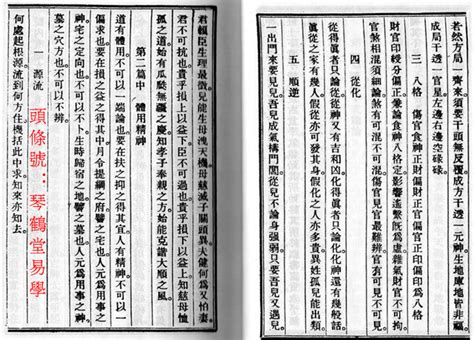 若然方局一齊來。須要干頭無反覆。成局干透元神。生地庫地皆非福。
成局干透一官星。左邊右邊空碌碌。
三 傷官食神正財偏財正官偏官正印偏印爲八格
財官印綬分偏正。兼論食神八格定。影響遙繫既爲虛。雜氣財官不可拘。
官煞相混須細論。煞有可混不可混。傷官見官最難辨。官有可見不可見。
四 從化
從得眞者只論從。從神又有吉和凶。化得眞者只論化。化神還有幾般話。
眞從之家有幾人。假從亦可發其身。假化之人亦多貴。異姓孤兒能出類。
五 順逆
一出門來要見兒。吾兒成氣搆門閭。從兒不論身強弱。只要吾兒又得兒。
君賴臣生理最微。兒能生母洩天機。母慈滅子關頭異。夫健何爲又怕妻。
君不可抗也。貴乎損上以益下。臣不可過也。貴乎損下以益上。知慈母恤
孤之道。始有瓜瓞無疆之慶。知孝子奉親之方。始能克諧大順之風。
第二篇中 體用精神
道有體用。不可以一端論也。要在扶之抑之得其宜。人有精神。不可以一
偏求也。要在損之益之得其中。月令提綱之府。譬之宅也。人元爲用事之
神。宅之定向也。不可以不卜。生時歸宿之地。譬之墓也。人元爲用事之神。
墓之穴方也。不可以不辨。
一 源流
何處起根源。流到何方住。機括此中求。知來亦知去。
頭條號：琴鶴堂易學